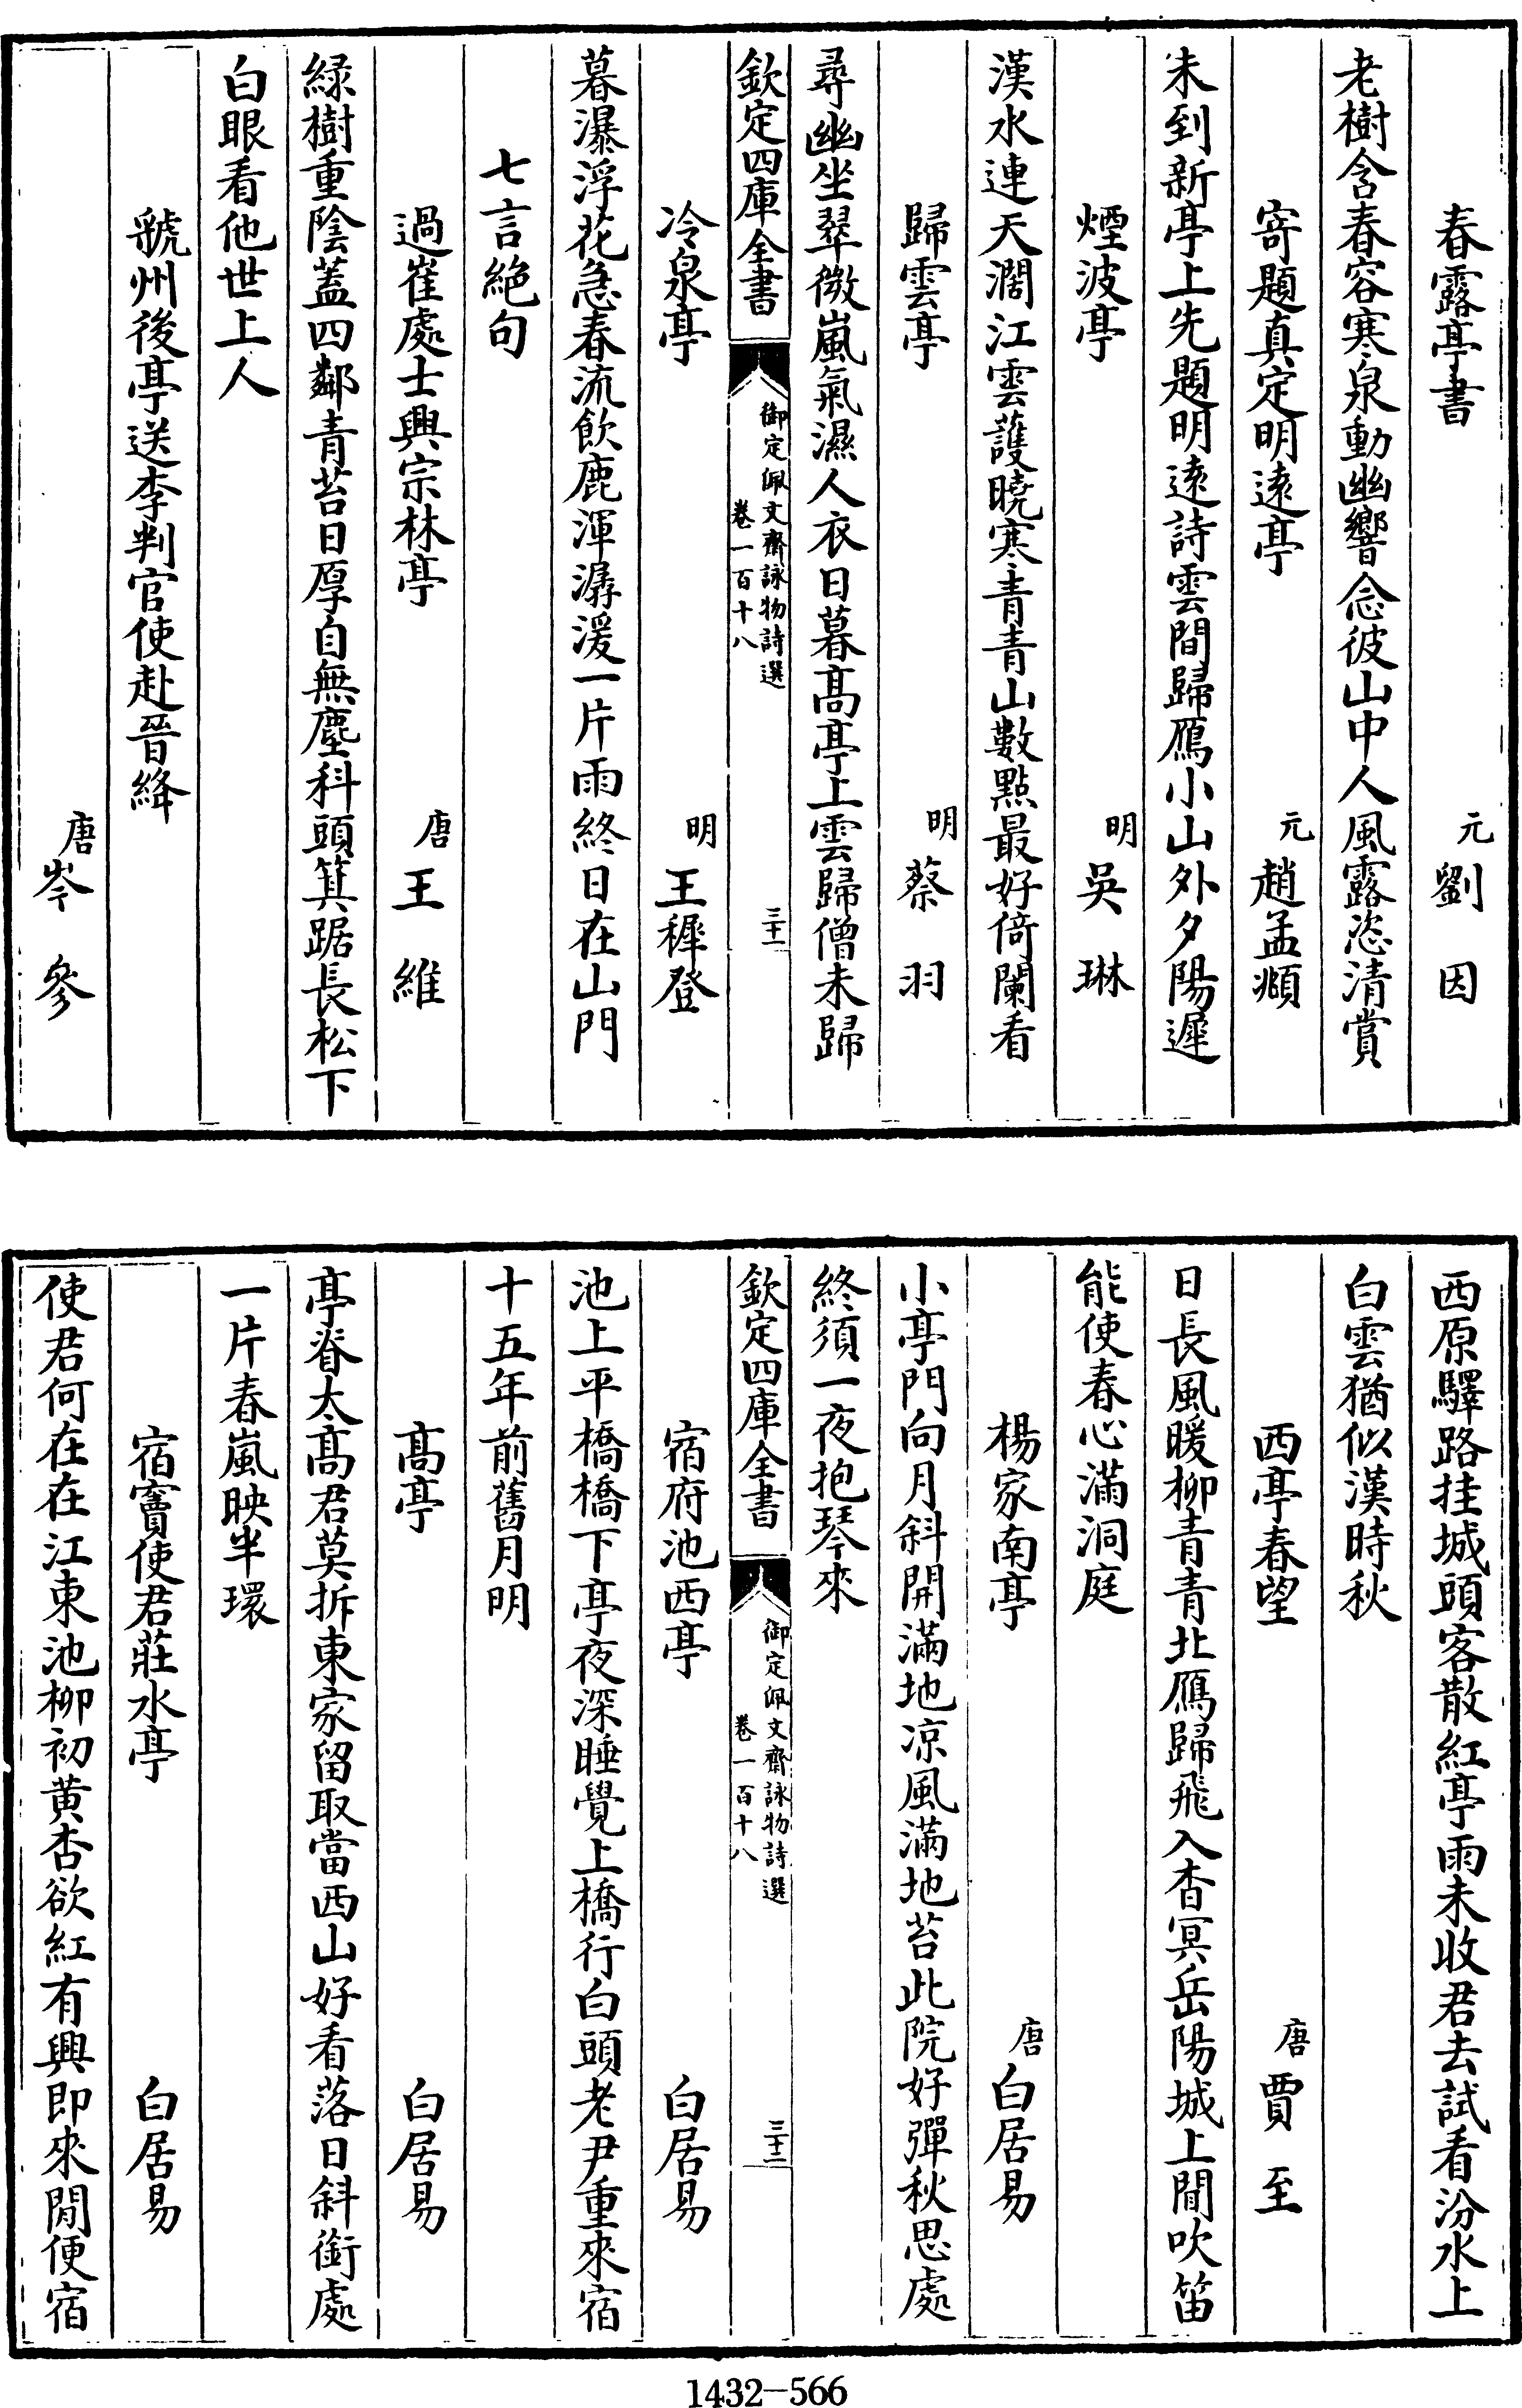 春露亭書　元劉因
老樹含春容寒泉動幽響念彼山中人風露恣清賞
寄題真定明遠亭　元趙孟頫
未到新亭上先題明遠詩雲間歸鴈小山外夕陽遲
煙波亭　明吳琳
漢水連天濶江雲護曉寒青青山數點最好倚闌看
歸雲亭　明蔡羽
尋幽坐翠微嵐氣濕人衣日暮髙亭上雲歸僧未歸
欽定四庫全書　御定佩文齋詠物詩選　卷一百十八　三十一
冷泉亭　明王穉登
暮瀑浮花急春流飲鹿渾潺湲一片雨終日在山門
七言絕句
過崔處士興宗林亭　唐王維
緑樹重陰蓋四鄰青苔日厚自無塵科頭箕踞長松下
白眼看他世上人
虢州後亭送李判官使赴晉絳
唐岑參
西原驛路挂城頭客散紅亭雨未收君去試看汾水上
白雲猶似漢時秋
西亭春望　唐賈至
日長風暖柳青青北鴈歸飛入杳冥岳陽城上聞吹笛
能使春心滿洞庭
楊家南亭　唐白居易
小亭門向月斜開滿地凉風滿地苔此院好彈秋思處
終須一夜抱琴來
欽定四庫全書　御定佩文齋詠物詩選　卷一百十八　三十二
宿府池西亭　白居易
池上平橋橋下亭夜深睡覺上橋行白頭老尹重來宿
十五年前舊月明
髙亭　白居易
亭脊太髙君莫拆東家留取當西山好看落日斜銜處
一片春嵐映半環
宿竇使君莊水亭　白居易
使君何在在江東池柳初黄杏欲紅有興即來閒便宿
1432-566